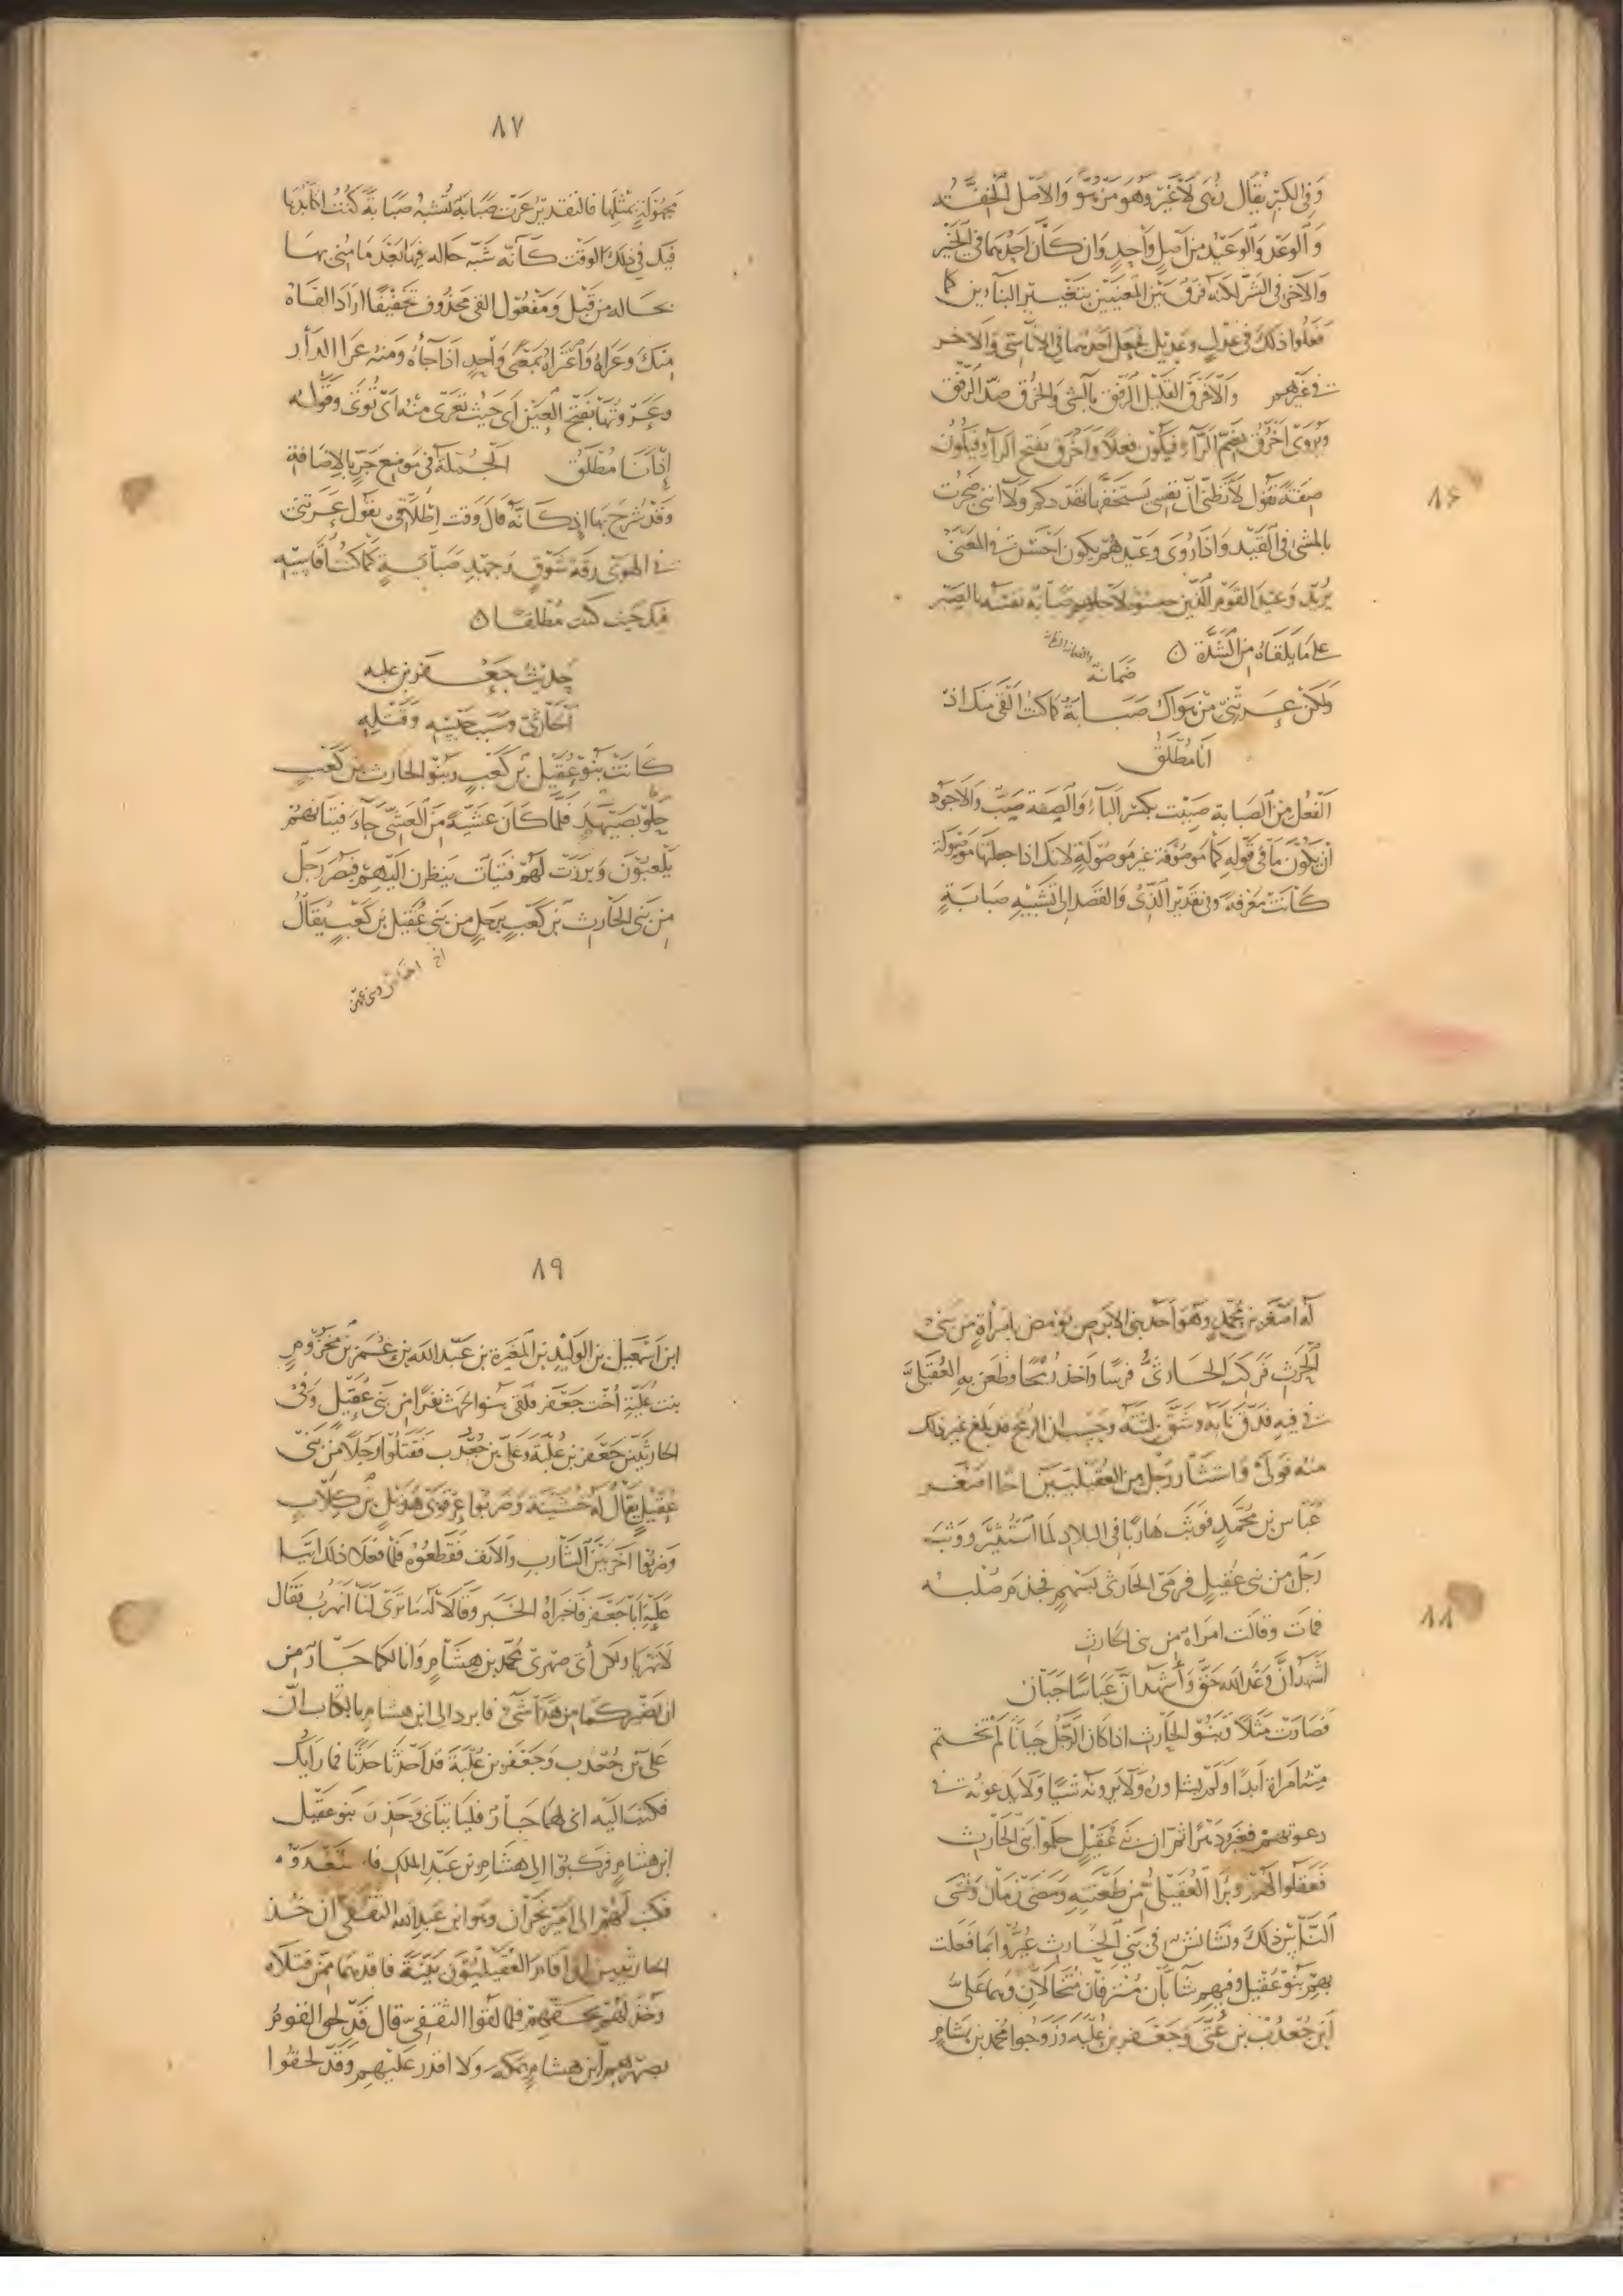 وفي الكبر يقال زهى لا غير وهو مزهو والاصل الخفة
والوعد والوعيد من اصل واحد وان كان احدهما في الخير
والآخر في الشر لكنه فرق بين المعنيين بتغيير البناءين كما
فعلوا ذلك في عدل وعديل فجعل احدهما في الاناسي والاخر
في غيرهم والاخرق القليل الرفق بالشي والخرق ضد الرفق
ويروى اخرق بضم الراء فيكون فعلا واخرق بفتح الراء فيكون
صفة يقول لا تظني ان نفسي يستخفها تهددكم ولا انني ضجرت
بالمشي في القيد واذا روى وعيدهم يكون احسن في المعنى
يريد وعيد القوم الذين حبسوه لاجلهم نفسه بالصبر
على ما يلقاه من الشدة
ضمانة
ولكن عرتني من هواك صبابة كما كنت القى منك اذ
انا مطلق
الفعل من الصبابة صببت بكسر الباء والصفة صب والاجود
ان يكون ما في قوله كما موصوفة غير موصولة لانك اذا جعلتها موصولة
كانت معرفة وفي تقدير الذي والقصد الى تشبيه صبابة
٨٦
٨٧
مجهولة بمثلها فالتقدير عرت صبابة تشبه صبابة كنت اكابدها
فيك في ذلك الوقت كانه شبه حاله فيها بعد ما مني بها
بحاله من قبل ومفعول القى محذوف تخفيفا اراد القاه
منك وعراه واعتراه بمعنى واحد اذا جاه ومنه عرا الدار
وعروتها بفتح العين اي حيث تعرى منه اي توتى وقوله
اذ انا مطلق الجملة في موضع جر بالاضافة
وقد شرح بها اذ كانه قال وقت اطلاقي يقول عرتني
في الهوى رقة شوق وجهد صبابة كما كنت اقاسيه
فيك حيث كنت مطلقا
حديث جعفر بن علبه
الحارثي وسبب حبسه وقتله
كانت بنو عقيل بن كعب وبنو الحارث بن كعب
حلو بصيهد فلما كان عشية من العشي جاء فتيانهم
يلعبون وبرزت لهم فتيات ينظرن اليهم فبصر رجل
من بني الحارث بن كعب برجل من بني عقيل بن كعب يقال
له اصغر بن محمد وهو احد بني الابرص يومض بامراة من بني
الحرث فركب الحارثي فرسا واخذ رمحا وطعن به العقيلي
في فيه فدق نابه وشق لثته وحسب ان الرمح قد بلغ غير ذلك
منه فولى واستثار رجل من العقيليين اخا اصغر
عباس بن محمد فوثب هاربا في البلاد لما استثير ووثب
رجل من بني عقيل فرمى الحارثي بسهم فجذم صلبه
فمات وقالت امراة من بني الحارث
اشهد ان وعد الله حق واشهد ان عباسا جبان
فصارت مثلا وبنو الحارث اذا كان الرجل جبانا لم تختم
منه امراة ابدا ولم يشاوروه ولا يرونه شيا ولا يدعونه في
دعوتهم ثم ان بني عقيل حلوا بني الحارث
فعقلوا لهم وبرا العقيلي من طعنته ومضى زمان ونسى
الناس ذلك ونشا نش في بني الحارث عيروا بما فعلت
بهم بنو عقيل وفيهم شابان مترفان مختالان وهما على
ابن جعدب بن عتى وجعفر بن علبه وزوجوا محمد بن هشام
٨٨
٨٩
ابن اسمعيل بن الوليد بن المغيرة بن عبد الله بن عمر بن مخزوم
بنت علبة اخت جعفر فلقي بنو الحرث نفرا من بني عقيل وفي
الحارثيين جعفر بن علبة وعلي بن جعدب فقتلوا رجلا من بني
عقيل يقال له خشينة وضربوا عرقوبي هذيل بن كلاب
وضربوا اخر بين الشارب والانف فقطعوه فلما فعلا ذلك اتيا
علبة ابا جعفر فاخبراه الخبر وقالا له ما ترى لنا انهرب فقال
لا تهربا ولكن ائتى صهري محمد بن هشام وانا لكما جار من
ان يضركما من هذا شي فابرد الى ابن هشام بالكتاب ان
علي بن جعدب وجعفر بن علبة قد احدثا حدثا فما رايك
فكتب اليه اني لهما جار فلياتياني وحذر بنو عقيل
ابن هشام فركبوا الى هشام بن عبد الملك فاستعدوه
فكتب لهم الى امير نجران وهو ابن عبد الله الثقفي ان خذ
الحارثيين اذا اقام العقيليون بينة فاقدهما ممن قتلاه
وخذ لهم بحقهم فلما لقوا الثقفي قال قد لحق القوم
بصهرهم ابن هشام بمكة ولا اقدر عليهم وقد لحقوا